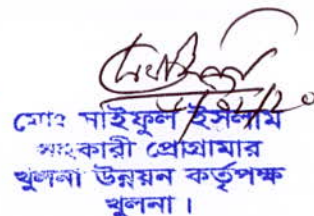 মোঃ সাইফুল ইসলাম
সহকারী প্রোগ্রামার
খুলনা উন্নয়ন কর্তৃপক্ষ
খুলনা ।